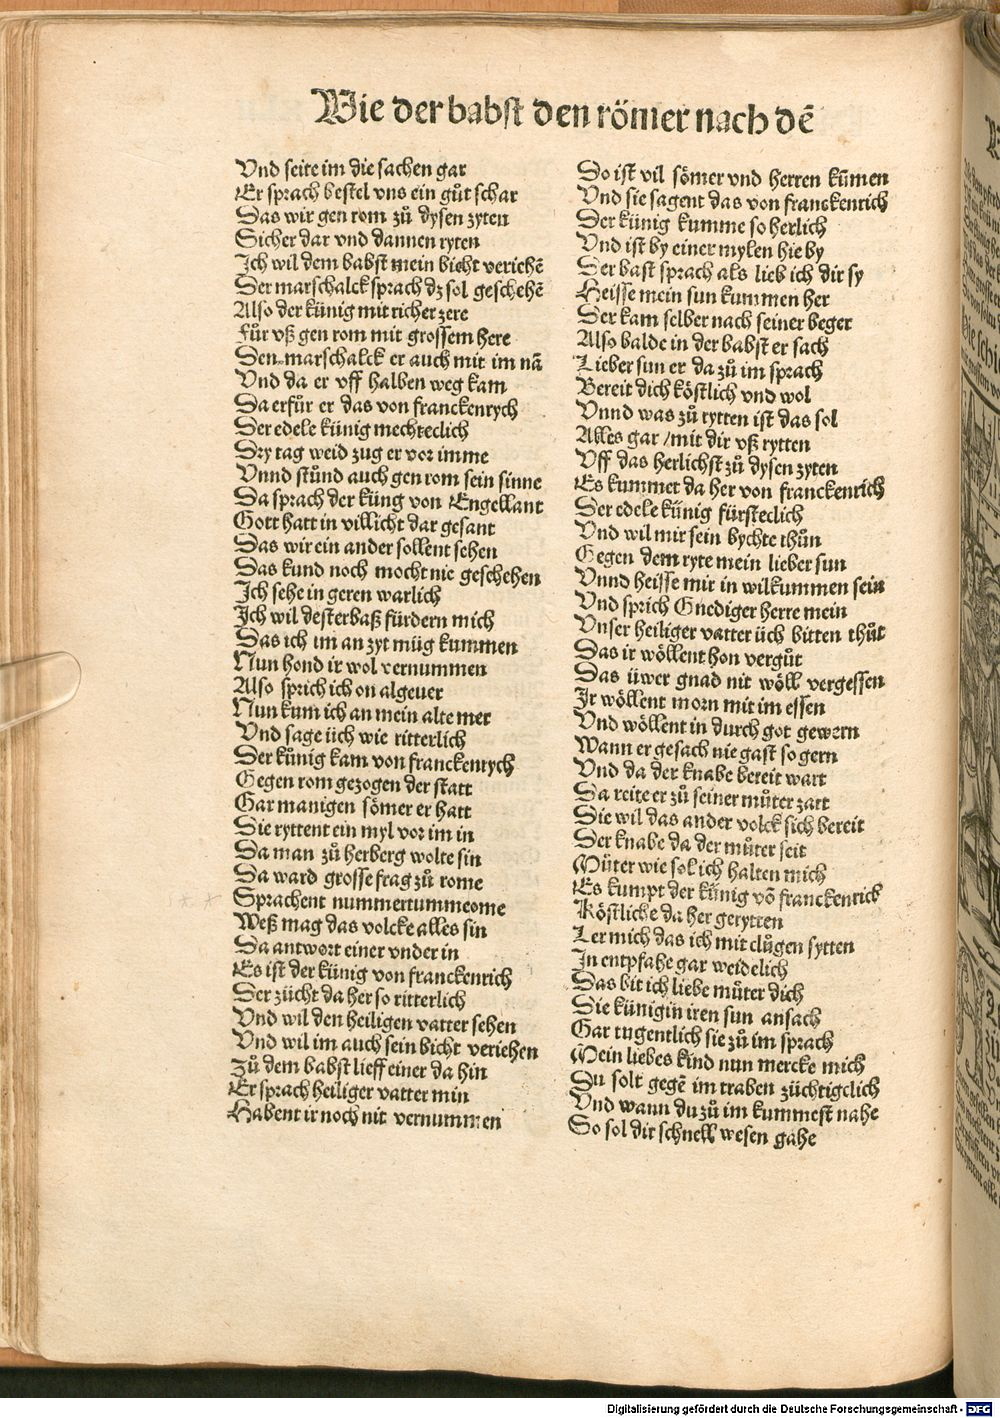 Wie der babst den römer nach dē
Vnd seite im die sachen gar
Er sprach bestel vns ein gůt schar
Das wir gen rom zů dysen zyten
Sicher dar vnd dannen ryten
Ich wil dem babst mein bicht veriehē
Der marschalck sprach dz sol geschehē
Also der künig mit richer zere
Für vß gen rom mit grossem here
Den marschalck er auch mit im nā
Vnd da er vff halben weg kam
Da erfůr er das von franckenrych
Der edele künig mechteclich
Dry tag weid zug er vor imme
Vnnd stůnd auch gen rom sein sinne
Da sprach der küng von Engellant
Gott hatt in villicht dar gesant
Das wir ein ander sollent sehen
Das kund noch mocht nie geschehen
Ich sehe in geren warlich
Ich wil desterbaß fürdern mich
Das ich im an zyt müg kummen
Nun hond ir wol vernummen
Also sprich ich on algeuer
Nun kum ich an mein alte mer
Vnd sage üch wie ritterlich
Der künig kam von franckenrych
Gegen rom gezogen der statt
Gar manigen sömer er hatt
Die ryttent ein myl vor im in
Da man zů herberg wolte sin
Da ward grosse frag zů rome
Sprachent nummertummeome
Weß mag das volcke alles sin
Da antwort einer vnder in
Es ist der künig von franckenrich
Der zücht da her so ritterlich
Vnd wil den heiligen vatter sehen
Vnd wil im auch sein bicht veriehen
Zů dem babst lieff einer da hin
Er sprach heiliger vatter min
Habent ir noch nit vernummen
So ist vil sömer vnd herren kūmen
Vnd sie sagent das von franckenrich
Der künig kumme so herlich
Vnd ist by einer mylen hie by
Der bast sprach als lieb ich dir sy
Heisse mein sun kummen her
Der kam selber nach seiner beger
Also balde in der babst er sach
Lieber sun er da zů im sprach
Bereit dich köstlich vnd wol
Vnnd was zů rytten ist das sol
Alles gar / mit dir vß rytten
Vff das herlichst zů dysen zyten
Es kummet da her von franckenrich
Der edele künig fürsteclich
Vnd wil mir sein bychte thůn
Gegen dem ryte mein lieber sun
Vnnd heisse mir in wilkummen sein
Vnd sprich Gnediger herre mein
Vnser heiliger vatter üch bitten thůt
Das ir wöllent hon vergůt
Das üwer gnad nit wöll vergessen
Ir wöllent morn mit im essen
Vnd wöllent in durch got gewern
Wann er gesach nie gast so gern
Vnd da der knabe bereit wart
Da reite er zů seiner můter zart
Die wil das ander volck sich bereit
Der knabe da der můter seit
Můter wie sol ich halten mich
Es kumpt der künig vō franckenrich
Köstliche da her gerytten
Ler mich das ich mit clůgen sytten
In entpfahe gar weidelich
Das bit ich liebe můter dich
Die künigin iren sun ansach
Gar tugentlich sie zů im sprach
Mein liebes kind nun mercke mich
Du solt gegē im traben züchtigclich
Vnd wann du zů im kummest nahe
So sol dir schnell wesen gahe
Digitalisierung gefördert durch die Deutsche Forschungsgemeinschaft - DFG